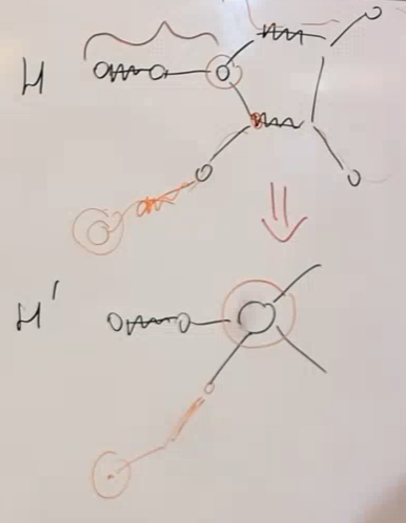 H
H'